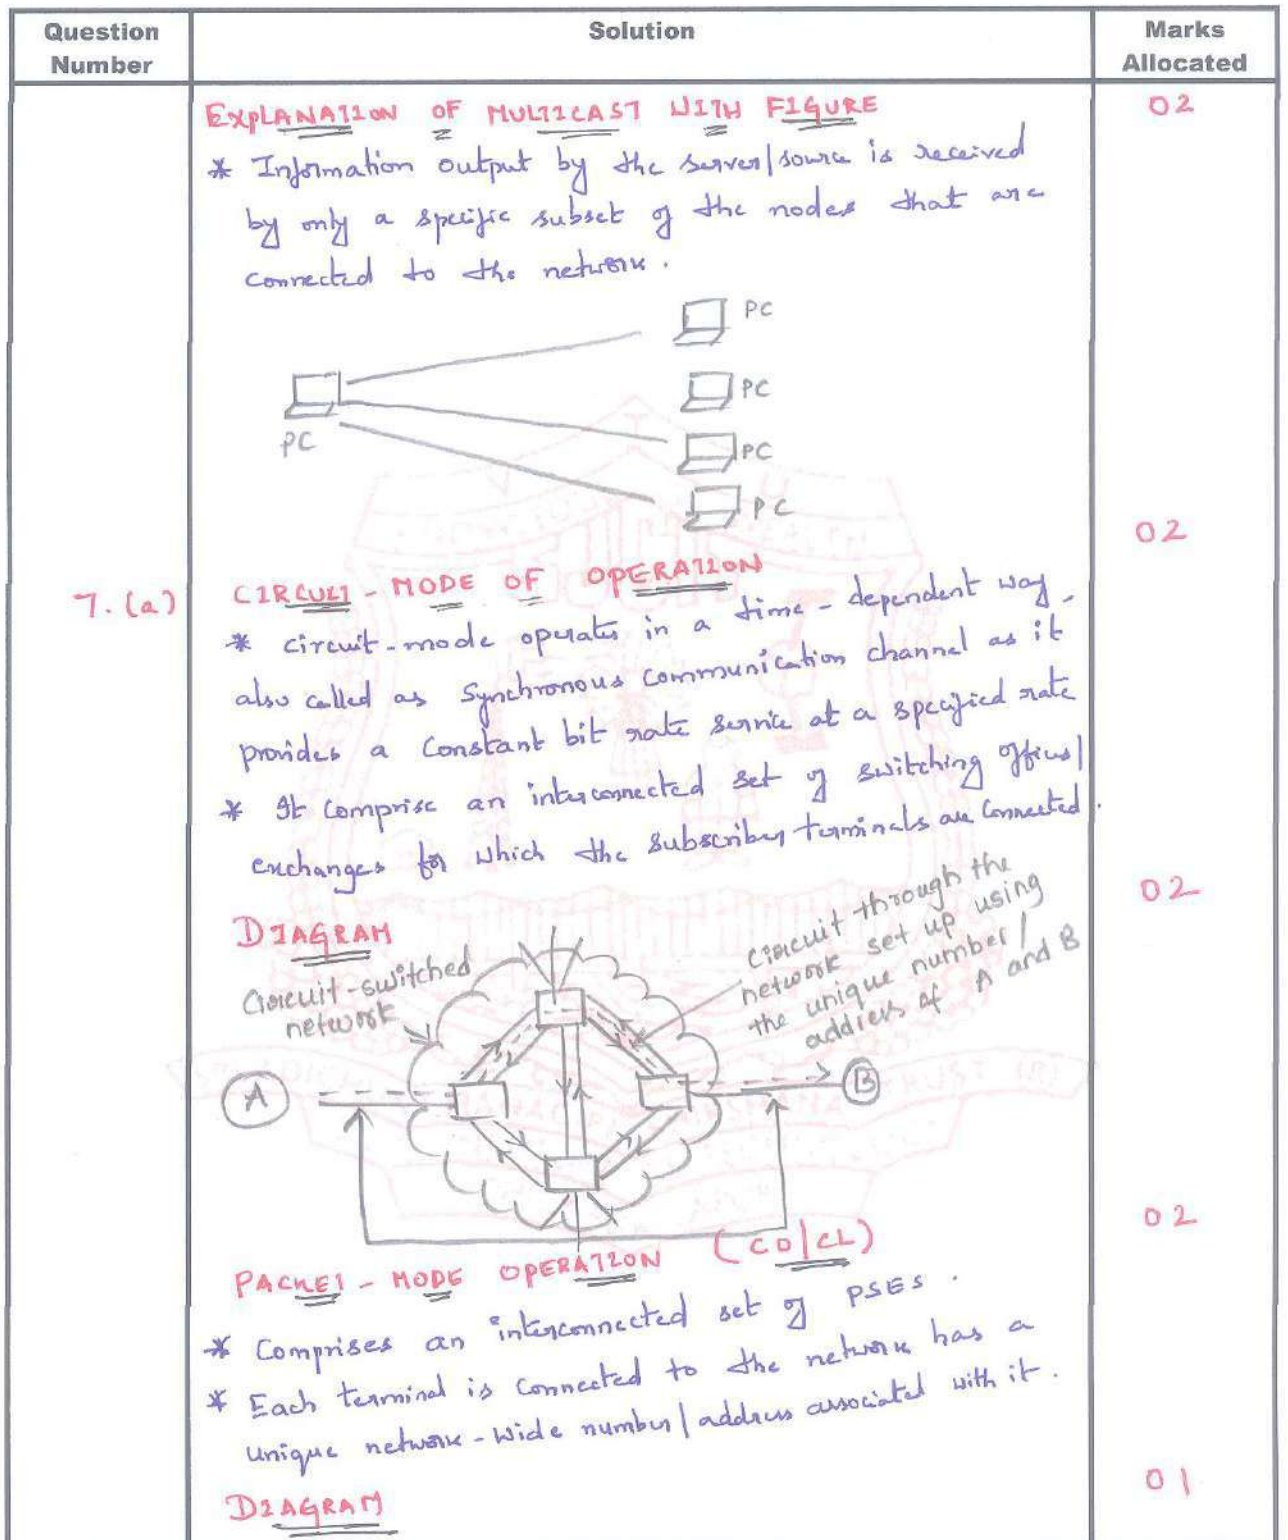 Question Number
Solution
Marks Allocated
EXPLANATION OF MULTICAST WITH FIGURE
02
* Information output by the server/source is received
by only a specific subset of the nodes that are
connected to the network.
PC
PC
PC
PC
PC
02
7.(a)
CIRCUIT - MODE OF OPERATION
* circuit-mode operates in a time-dependent way,
also called as Synchronous communication channel as it
provides a constant bit rate service at a specified rate
* It comprise an interconnected set of switching offices/
exchanges for which the subscriber terminals are connected.
02
DIAGRAM
Circuit-switched
network
circuit through the
network set up using
the unique number/
address of A and B
A
B
02
PACKET - MODE OPERATION (CO/CL)
* Comprises an interconnected set of PSES.
* Each terminal is connected to the network has a
unique network-wide number/address associated with it.
01
DIAGRAM